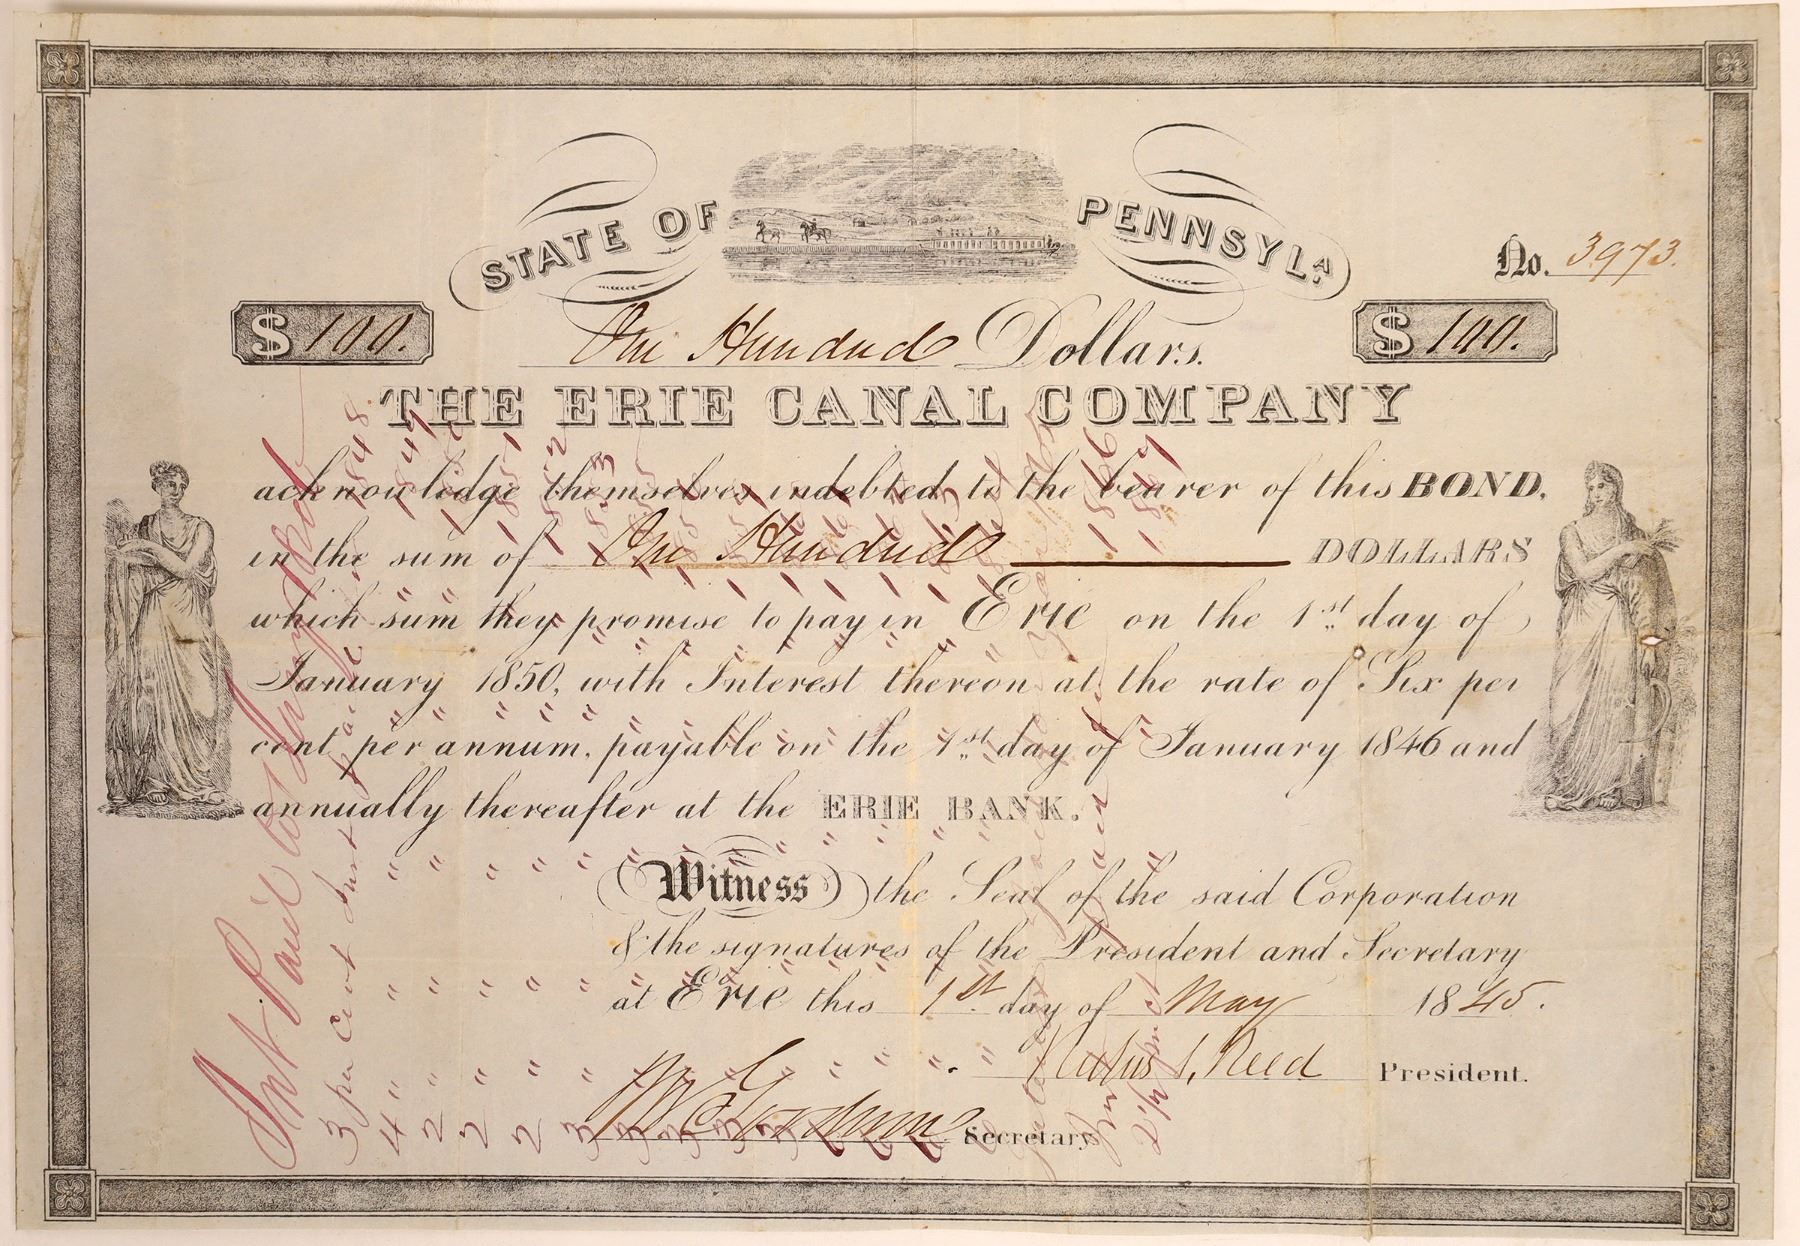 STATE OF PENNSYLA.
No. 3973.
$ 100.
One Hundred Dollars.
$ 100.
THE ERIE CANAL COMPANY
acknowledge themselves indebted to the bearer of this BOND,
in the sum of One Hundred DOLLARS
which sum they promise to pay in Erie on the 1st day of
January 1850, with Interest thereon at the rate of Six per
cent per annum, payable on the 1st day of January 1846 and
annually thereafter at the ERIE BANK.
Witness the Seal of the said Corporation
& the signatures of the President and Secretary
at Erie this 1st day of May 1845.
Rufus S. Reed President.
Secretary
Int Paid
3 per cent Int paid 1848
4 " " " " 1849
2 " " " "
2 " " " " 1851
2 " " " " 1852
3 " " " " 1853
3 " " " "
3 " " " "
3 " " " "
3 " " " "
1866
2½ pr ct " " 1867